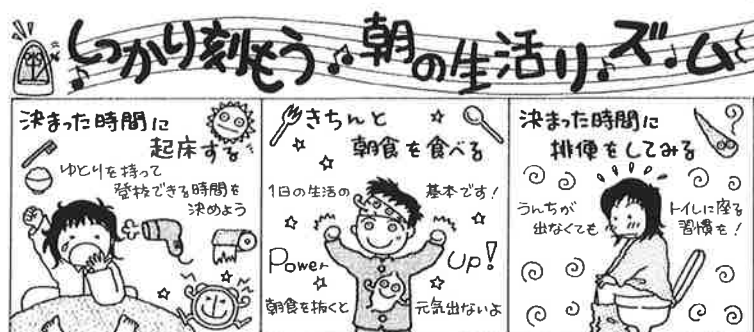 しっかり刻もう♪朝の生活リズム
決まった時間に
起床する
ゆとりを持って
登校できる時間を
決めよう
きちんと
朝食を食べる
1日の生活の
基本です!
Power
Up!
朝食を抜くと
元気出ないよ
決まった時間に
排便をしてみる
うんちが
出なくても
トイレに座る
習慣を!